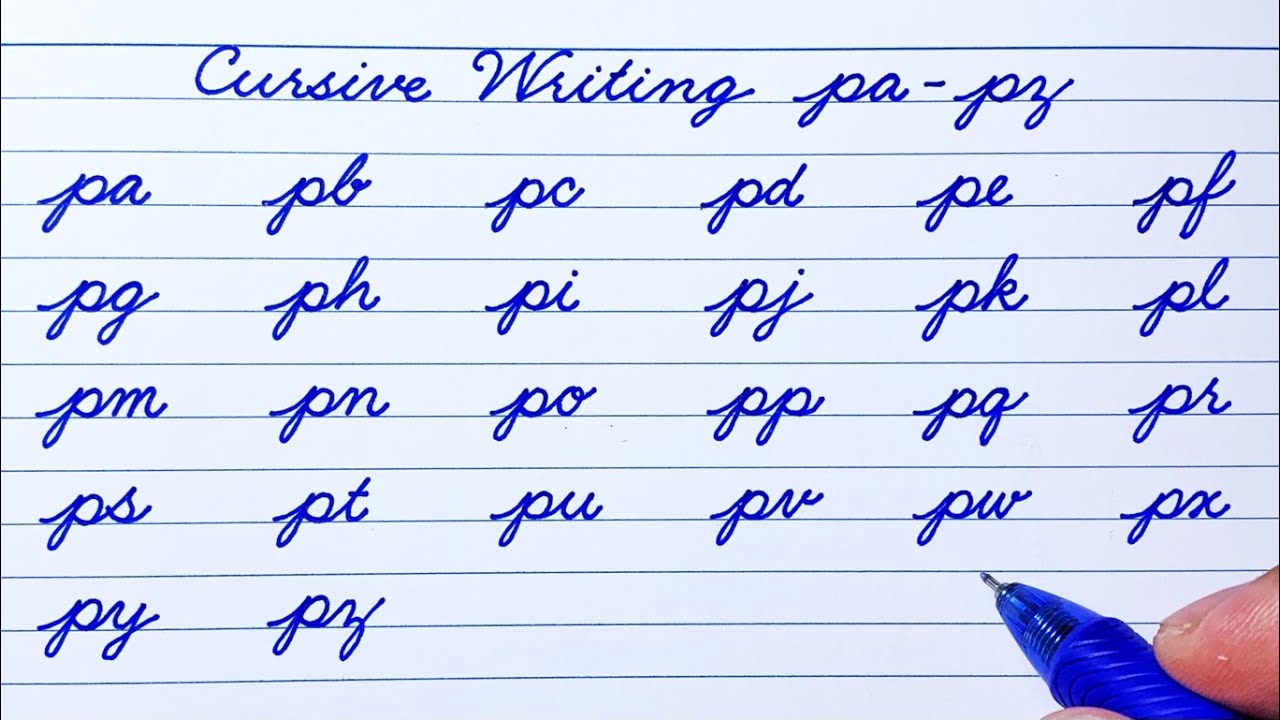 Cursive Writing pa-pz
pa pb pc pd pe pf
pg ph pi pj pk pl
pm pn po pp pq pr
ps pt pu pv pw px
py pz